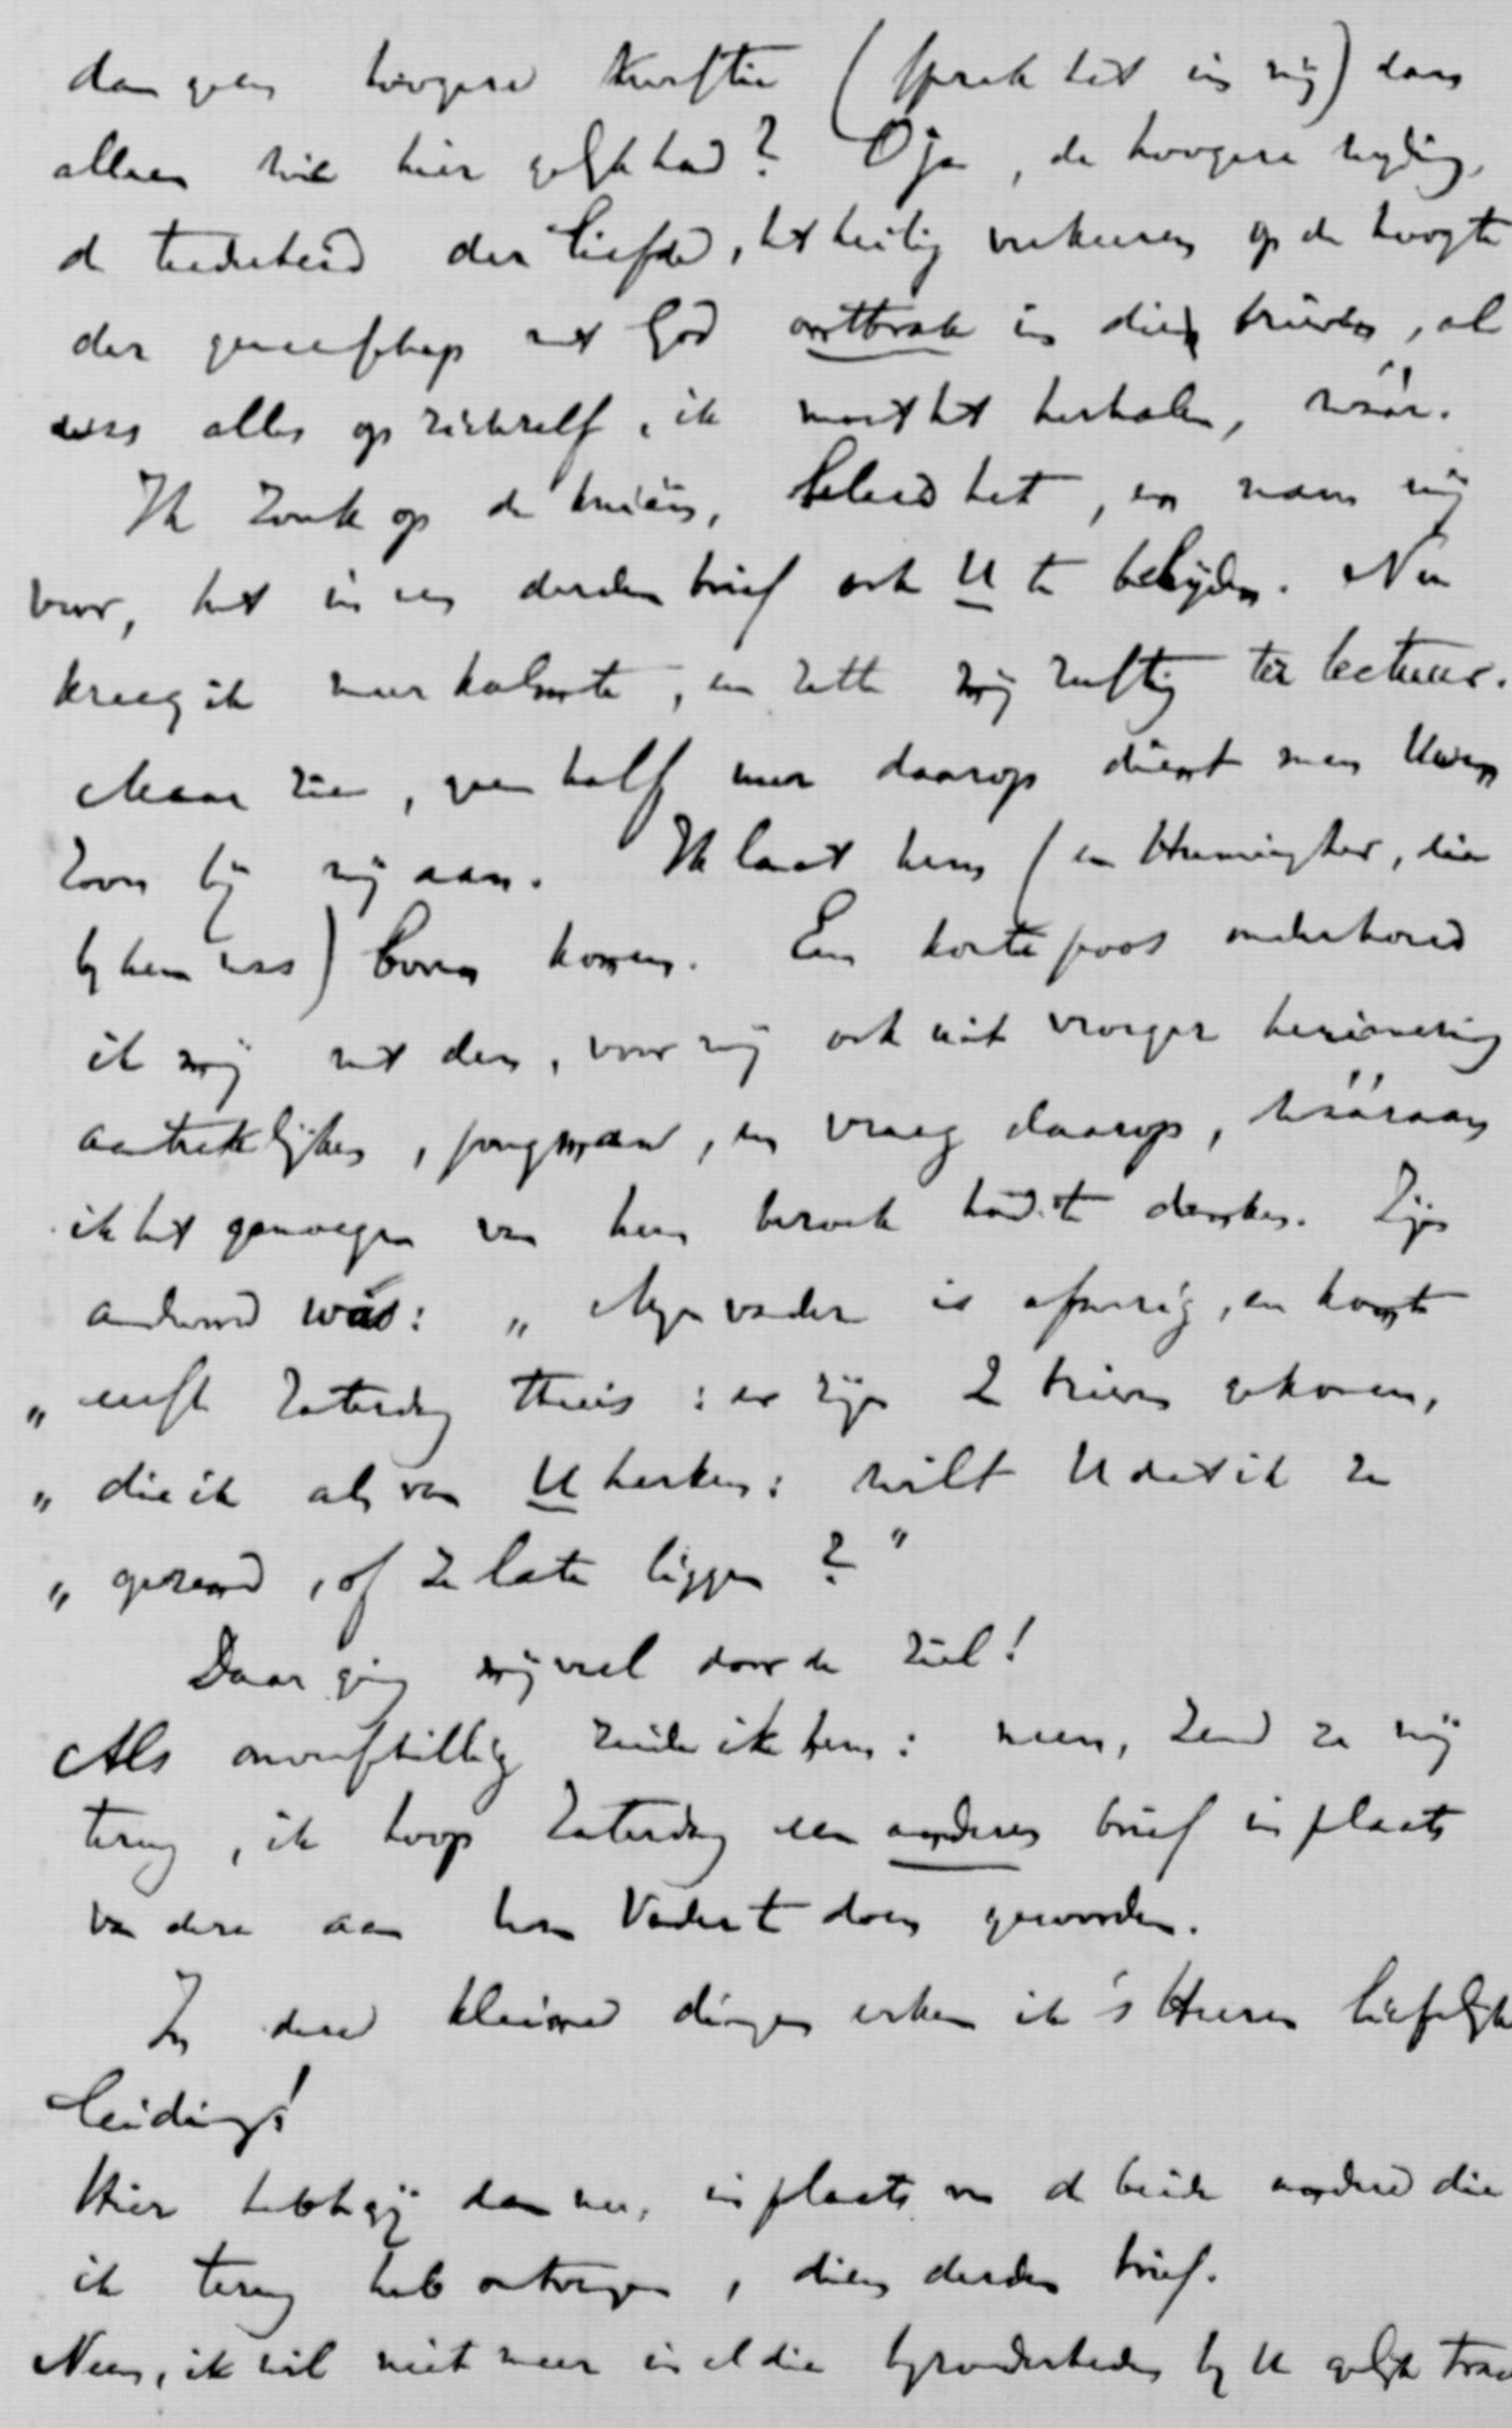 dan geen hoogere kwestie (sprak het in mij) dan
alleen wie hier gelijk had? O ja, de hoogere wijding,
de teederheid der liefde, het heilig verkeeren op de hoogte
der gemeenschap met God ontbrak in die brieven, al
was alles op zichzelf, ik moet het herhalen, wáár.
Ik zonk op de knieën, beleed het, en nam mij
voor, het in een derden brief ook U te belijden. Nu
kreeg ik meer kalmte, en zette mij rustig ter lectuur.
Maar zie, geen half uur daarop dient men Uwen
zoon bij mij aan. Ik laat hem (en die
bij hem was) boven komen. Een korte poos onderhoud
ik mij met den, voor mij ook uit vroeger herinnering
aantrekkelijken, jongman, en vraag daarop, wáaraan
ik het genoegen van hun bezoek had te danken. Zijn
antwoord was: „Mijn vader is afwezig, en komt
„eerst Zaterdag thuis: er zijn 2 brieven gekomen,
„die ik als van U herken: wilt U dat ik ze
„ , of ze late liggen?"
Daar ging mij veel door de ziel!
Als onwillekeurig zeide ik hem: neen, zend ze mij
terug, ik hoop Zaterdag een anderen brief in plaats
van deze aan Uw Vader te doen geworden.
In deze kleine dingen erken ik 's Heeren liefelijke
leiding!
Hier hebt gij dan nu, in plaats van de beide andere die
ik terug heb ontvangen, dien derden brief.
Neen, ik wil niet meer in al die bijzonderheden bij U gelijk